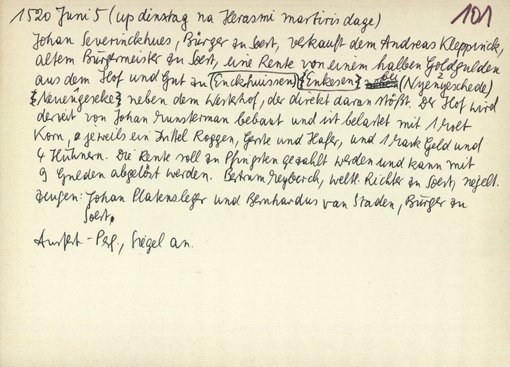 1520 Juni 5 (up dinxtag na Herasmi martiris dage) 101
Johan Severinckhues, Bürger zu Soest, verkauft dem Andreas Kleppinck,
altem Bürgermeister zu Soest, eine Rente von einem halben Goldgulden
aus dem Hof und Gut zu (Enckhuissen) {Enkesen} bei (Nyengeschede)
{Neuengeseke} neben dem Werkhof, der direkt daran stößt. Der Hof wird
derzeit von Johan Munsterman bebaut und ist belastet mit 1 Molt
Korn, jeweils ein Drittel Roggen, Gerste und Hafer, und 1 Mark Geld und
4 Hühnern. Die Rente soll zu Pfingsten gezahlt werden und kann mit
9 Gulden abgelöst werden. Bertram Meyberch, weltl. Richter zu Soest, siegelt.
Zeugen: Johan Platensleger und Bernhardus van Staden, Bürger zu
Soest.
Ausfert.-Perg., Siegel an.